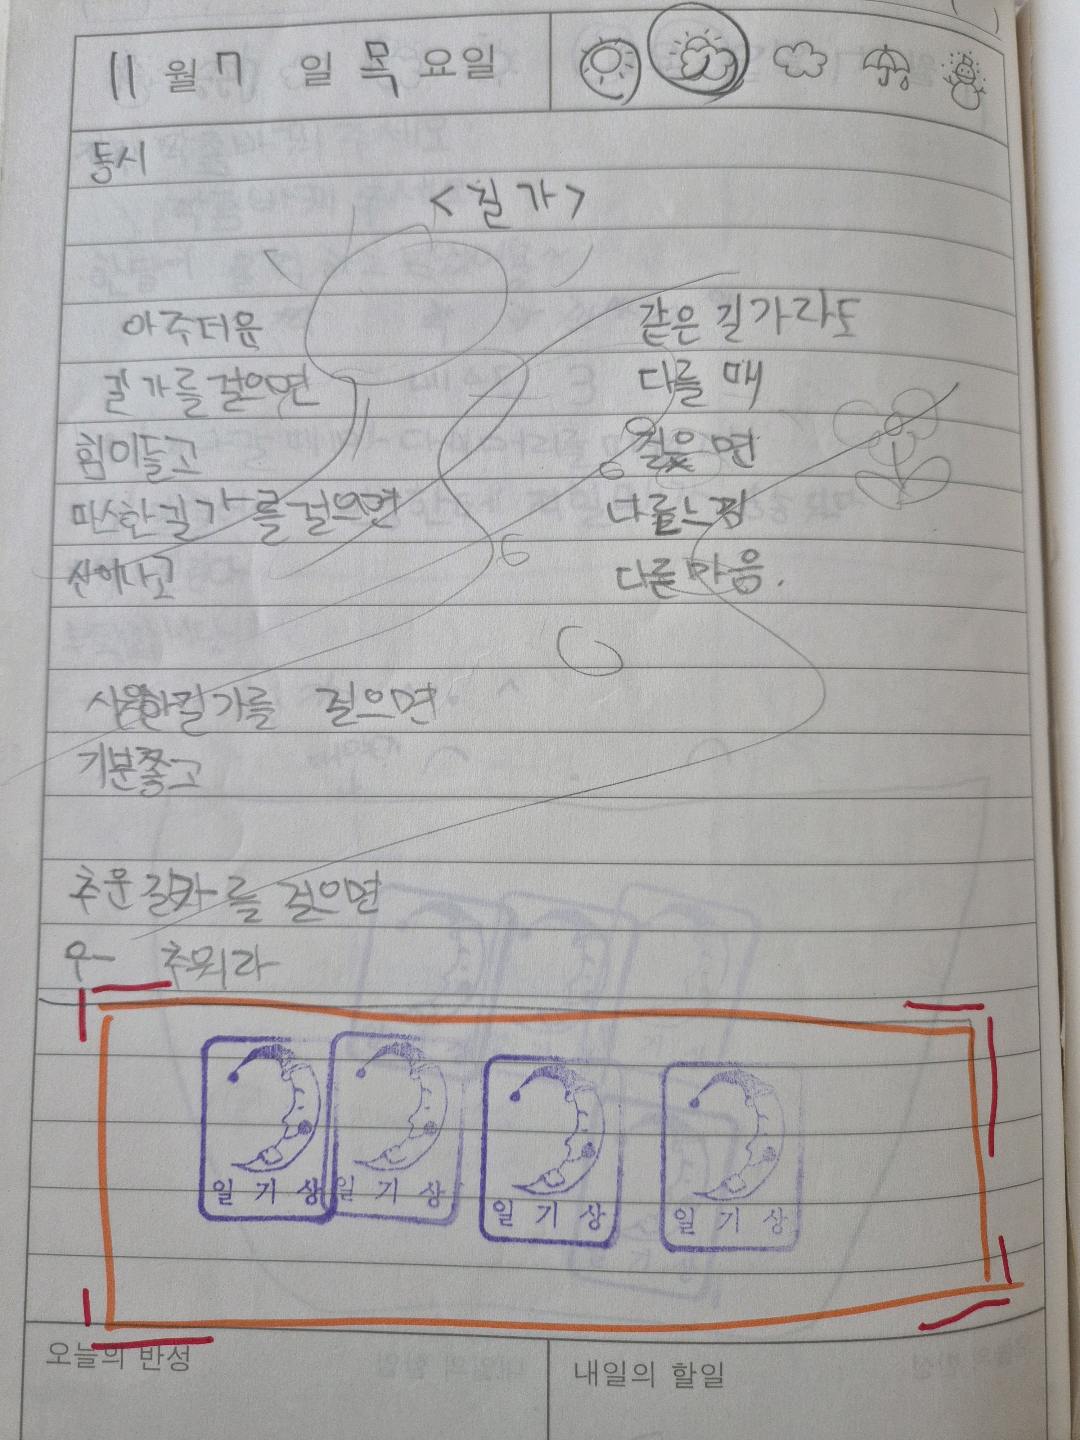 11월 7일 목요일
동시
<길가>
아주더운
길가를 걸으면
힘이들고
따스한길가를 걸으면
신이나고
시원한길가를 걸으면
기분좋고
추운길가를 걸으면
우- 추워라
같은 길가라도
다를 때
걸으면
다른느낌
다른마음.
일기상 일기상 일기상 일기상
오늘의 반성
내일의 할일